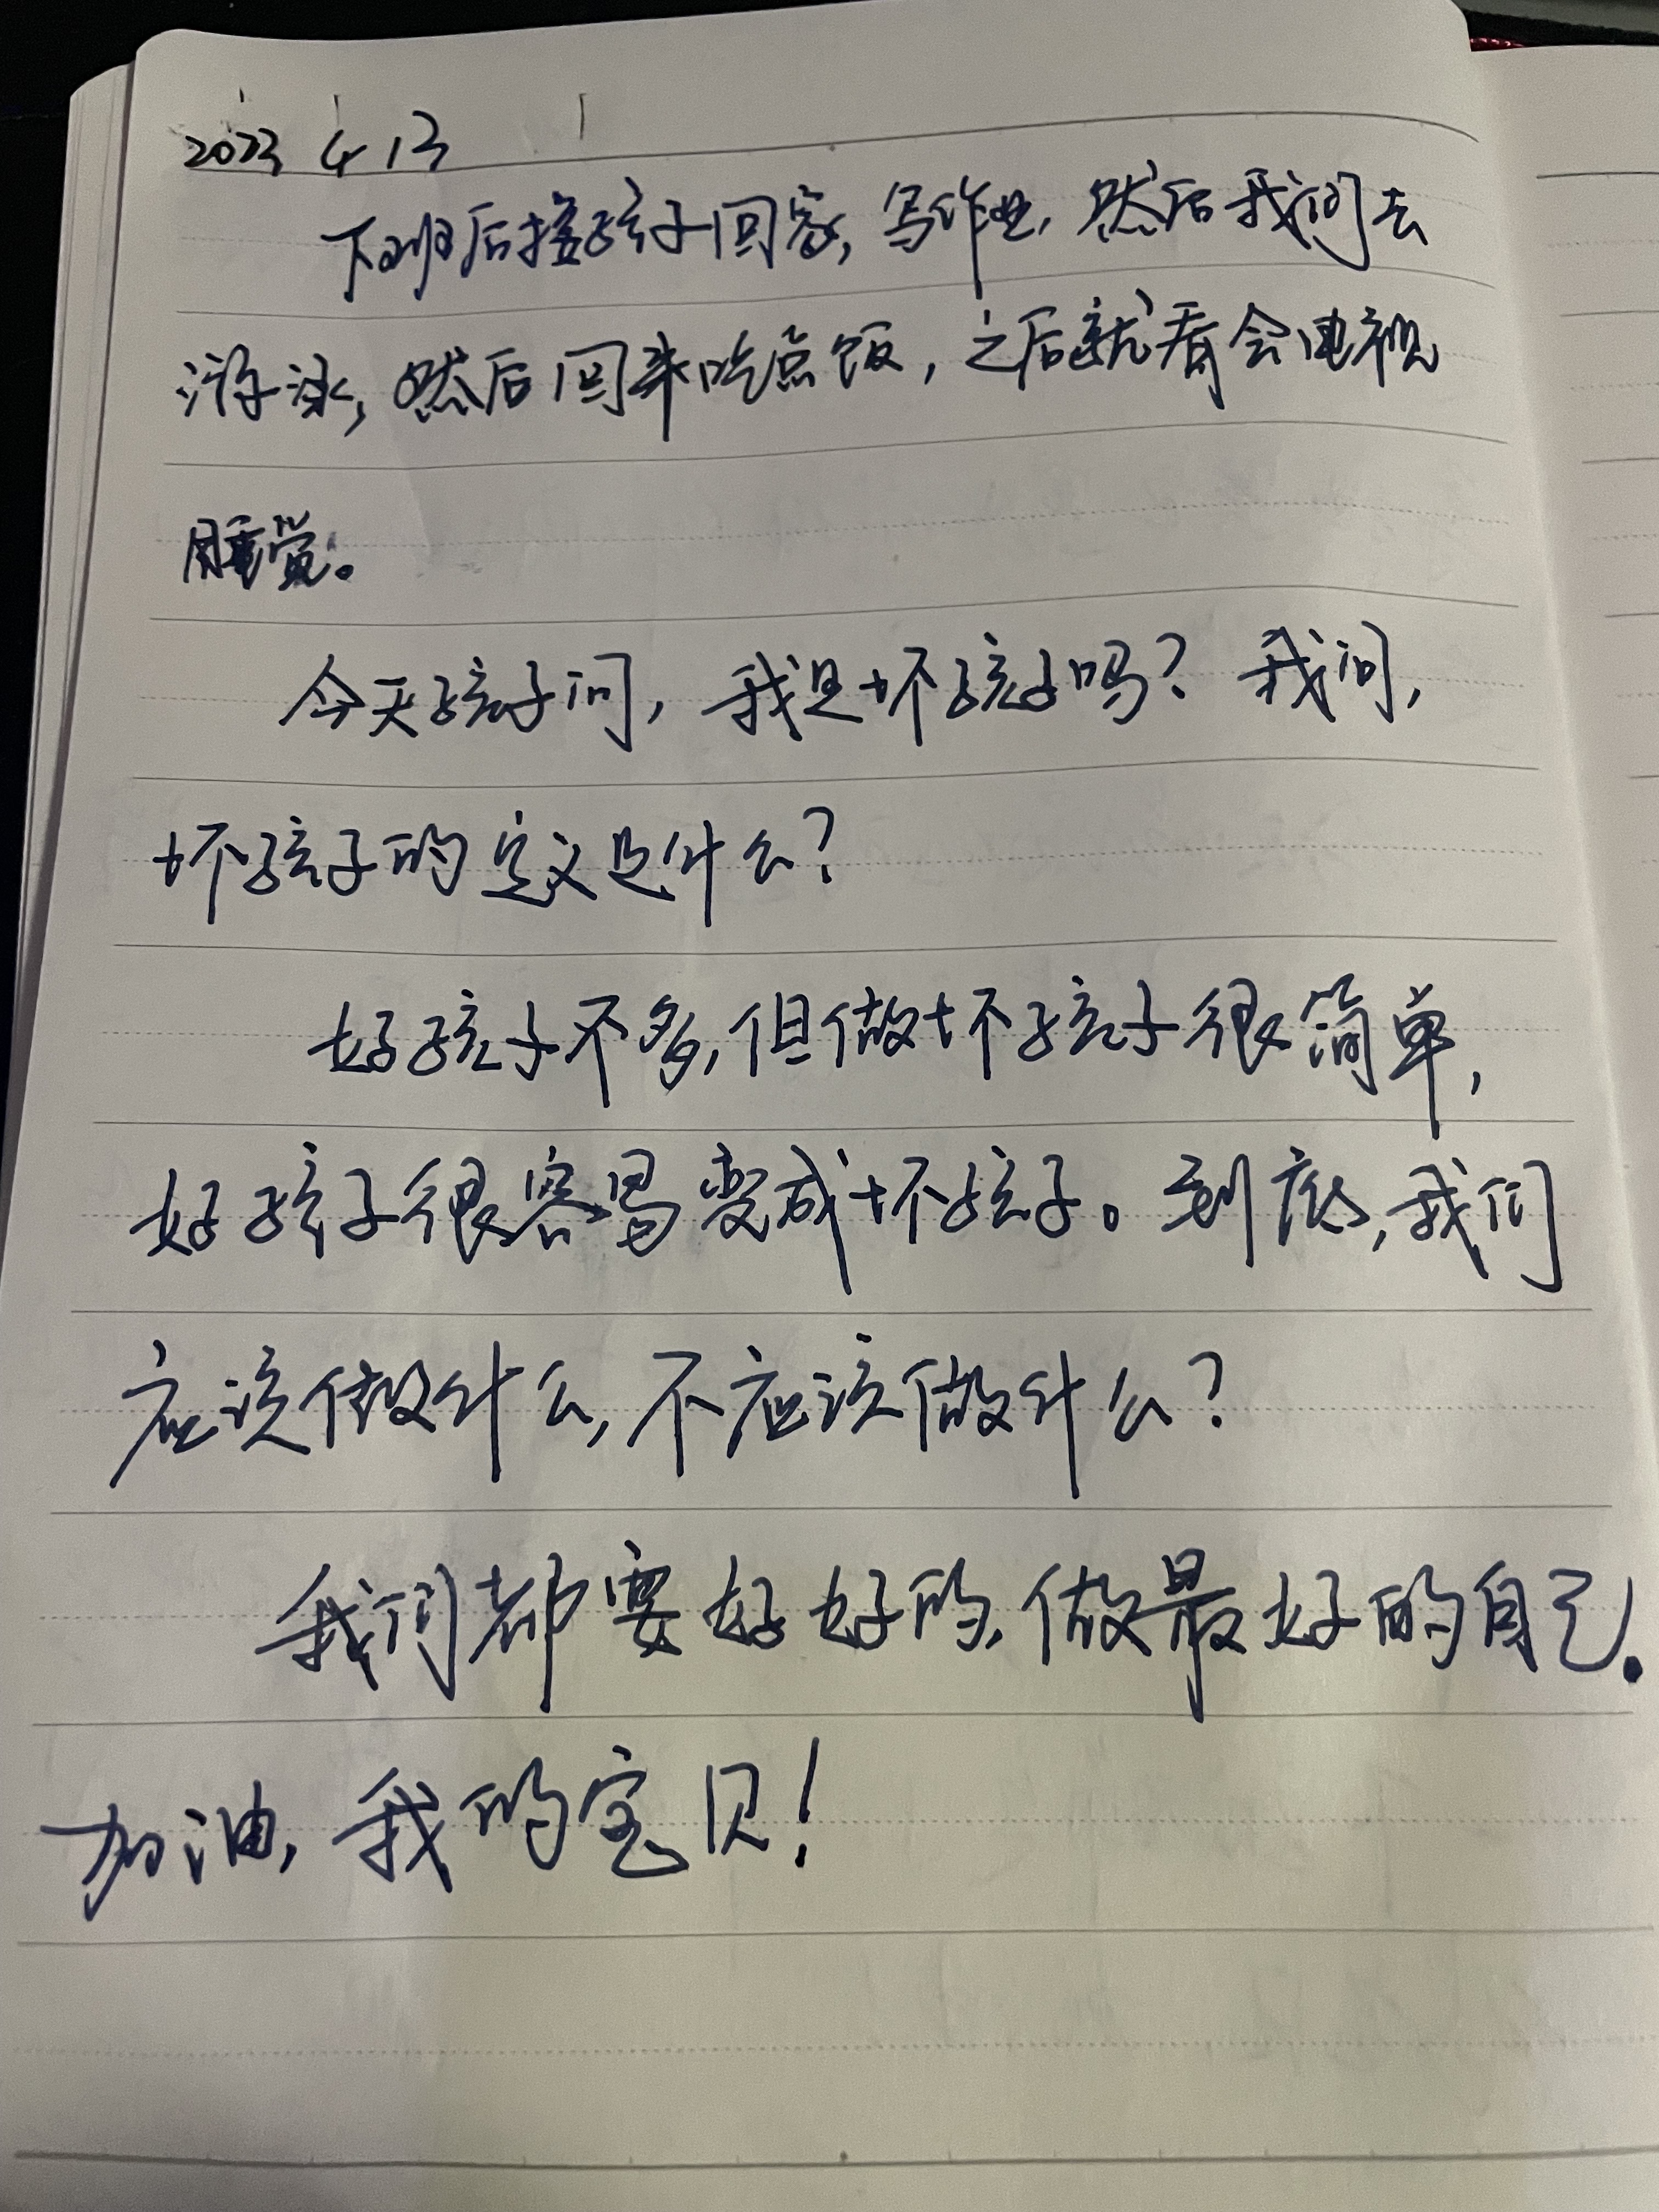 2023 4 13
下班后接孩子回家,写作业,然后我们去
游泳,然后回来吃点饭,之后就看会电视
睡觉。
今天孩子问,我是坏孩子吗?我问,
坏孩子的定义是什么?
好孩子不多,但做坏孩子很简单,
好孩子很容易变成坏孩子。到底,我们
应该做什么,不应该做什么?
我们都要好好的,做最好的自己.
加油,我的宝贝!